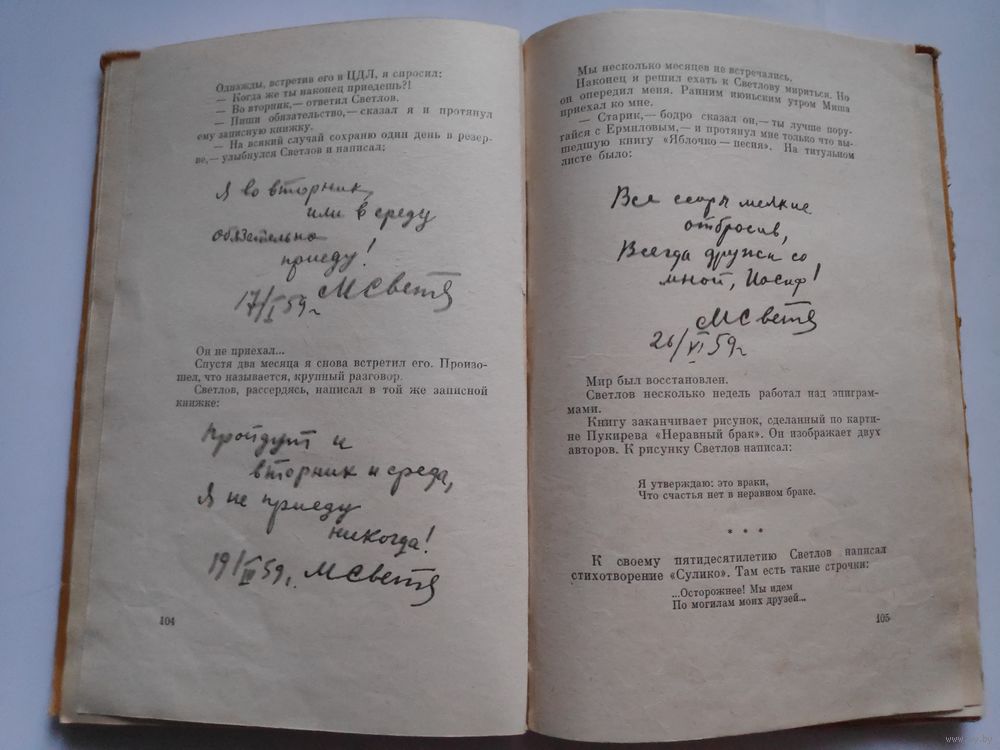 Однажды, встретив его в ЦДЛ, я спросил:
— Когда же ты наконец приедешь?!
— Во вторник,— ответил Светлов.
— Пиши обязательство,— сказал я и протянул
ему записную книжку.
— На всякий случай сохраню один день в резер-
ве,— улыбнулся Светлов и написал:
Я во вторник,
или в среду
обязательно
приеду!
17/I 59 г МСветл
Он не приехал...
Спустя два месяца я снова встретил его. Произо-
шел, что называется, крупный разговор.
Светлов, рассердясь, написал в той же записной
книжке:
Пройдут и
вторник и среда,
Я не приеду
никогда!
19/III 59 г. МСветл
104
Мы несколько месяцев не встречались.
Наконец я решил ехать к Светлову мириться. Но
он опередил меня. Ранним июньским утром Миша
приехал ко мне.
— Старик,— бодро сказал он,— ты лучше пору-
гайся с Ермиловым,— и протянул мне только что вы-
шедшую книгу «Яблочко — песня». На титульном
листе было:
Все ссоры мелкие
отбросив,
Всегда дружи со
мной, Иосиф!
МСветл
26/VI 59 г
Мир был восстановлен.
Светлов несколько недель работал над эпиграм-
мами.
Книгу заканчивает рисунок, сделанный по карти-
не Пукирева «Неравный брак». Он изображает двух
авторов. К рисунку Светлов написал:
Я утверждаю: это враки,
Что счастья нет в неравном браке.
* * *
К своему пятидесятилетию Светлов написал
стихотворение «Сулико». Там есть такие строчки:
...Осторожнее! Мы идем
По могилам моих друзей...
105